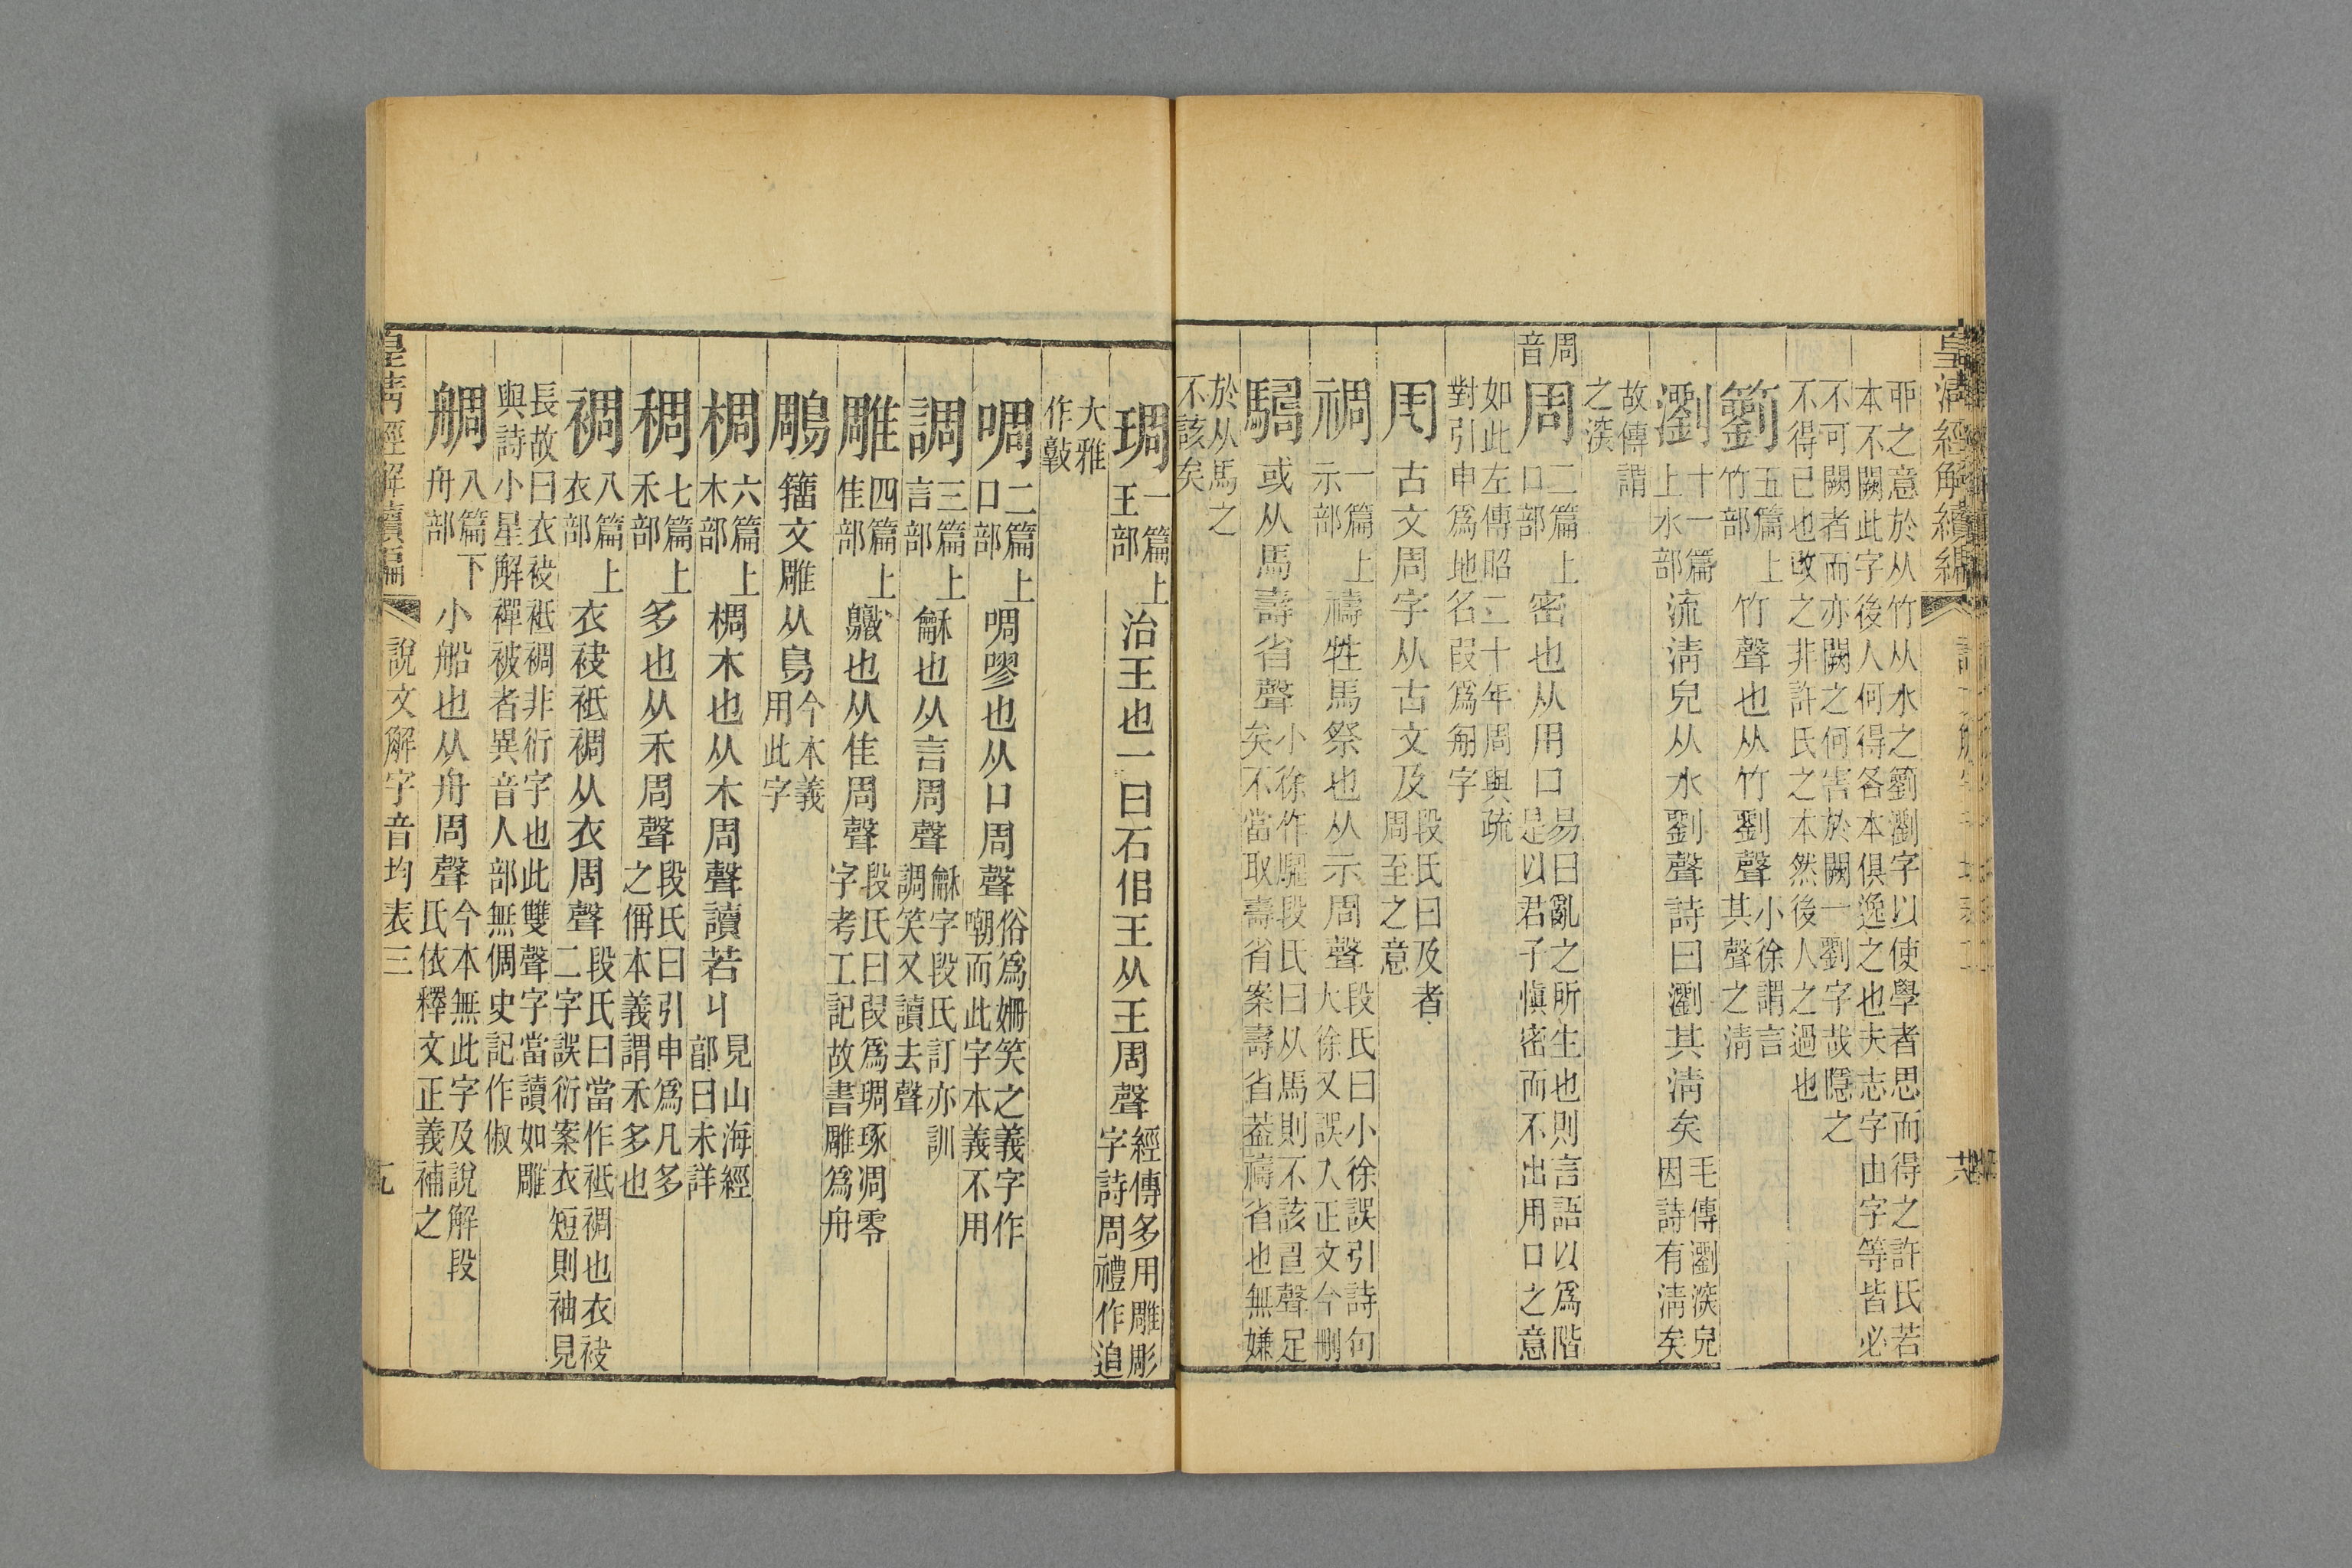 皇淸經解續編
丣之意於从竹从水之劉瀏字以使學者思而得之許氏若
本不闕此字後人何得各本俱逸之也夫志字由字等皆必
不可闕者而亦闕之何害於闕一劉字哉隱之
不得已也改之非許氏之本然後人之過也
籀 五篇上竹部 竹聲也从竹劉聲 小徐謂言其聲之淸
瀏 十一篇上水部 流淸皃从水劉聲詩曰瀏其淸矣 毛傳瀏深皃因詩有淸矣
故傳謂之深
周音
周 二篇上口部 密也从用口 易曰亂之所生也則言語以爲階是以君子愼密而不出用口之意
如此左傳昭二十年周與疏對引申爲地名叚爲匊字
𠄖 古文周字从古文及 段氏曰及者周至之意
禂 一篇上示部 禱牲馬祭也从示周聲 段氏曰小徐誤引詩句大徐又誤入正文今刪
騳 或从馬壽省聲 小徐作䮻段氏曰从馬則不該𠷎聲足矣不當取壽省案壽省葢禱省也無嫌
於从馬之不該矣
琱 一篇上王部 治王也一曰石佀王从王周聲 經傳多用雕彫字詩周禮作追
大雅作敦
啁 二篇上口部 啁嘐也从口周聲 俗爲姍笑之義字作嘲而此字本義不用
調 三篇上言部 龢也从言周聲 龢字段氏訂亦訓調笑又讀去聲
雕 四篇上隹部 鷻也从隹周聲 段氏曰叚爲琱琢凋零字考工記故書雕爲舟
鵰 籒文雕从鳥 今本義用此字
椆 六篇上木部 椆木也从木周聲讀若丩 見山海經部曰未詳
稠 七篇上禾部 多也从禾周聲 段氏曰引申爲凡多之偁本義謂禾多也
裯 八篇上衣部 衣袂袛裯从衣周聲 段氏曰當作袛裯也衣袂二字誤衍案衣短則袖見
長故曰衣袂袛裯非衍字也此雙聲字當讀如雕
與詩小星解襌被者異音人部無倜史記作俶
舟周 八篇下舟部 小船也从舟周聲 今本無此字及說解段氏依釋文正義補之
皇淸經解續編 說文解字音均表三